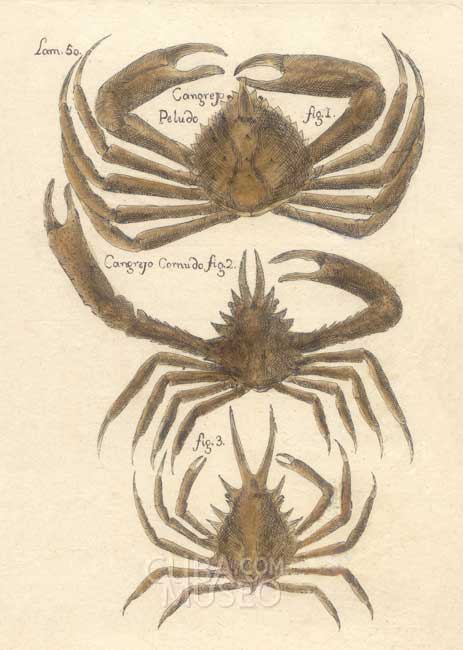 Lam. 50.
Cangrejo
Peludo fig. 1.
Cangrejo Cornudo fig. 2.
fig. 3.
CUBA.COM
MUSEO